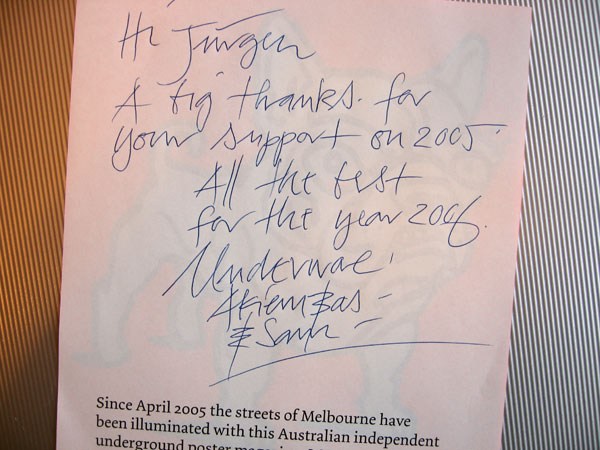 Hi Jürgen
A big thanks. for
your support on 2005.
All the best
for the year 2006.
Underware,
Akiem Bas -
& Sami -
Since April 2005 the streets of Melbourne have
been illuminated with this Australian independent
underground poster